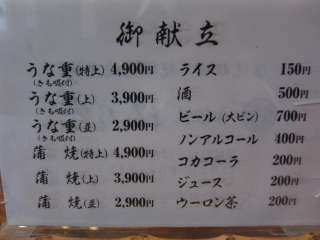 御献立
うな重(特上) 4,900円
(きも吸付)
うな重(上) 3,900円
(きも吸付)
うな重(並) 2,900円
(きも吸付)
蒲焼(特上) 4,900円
蒲焼(上) 3,900円
蒲焼(並) 2,900円
ライス 150円
酒 500円
ビール(大ビン) 700円
ノンアルコール 400円
コカコーラ 200円
ジュース 200円
ウーロン茶 200円